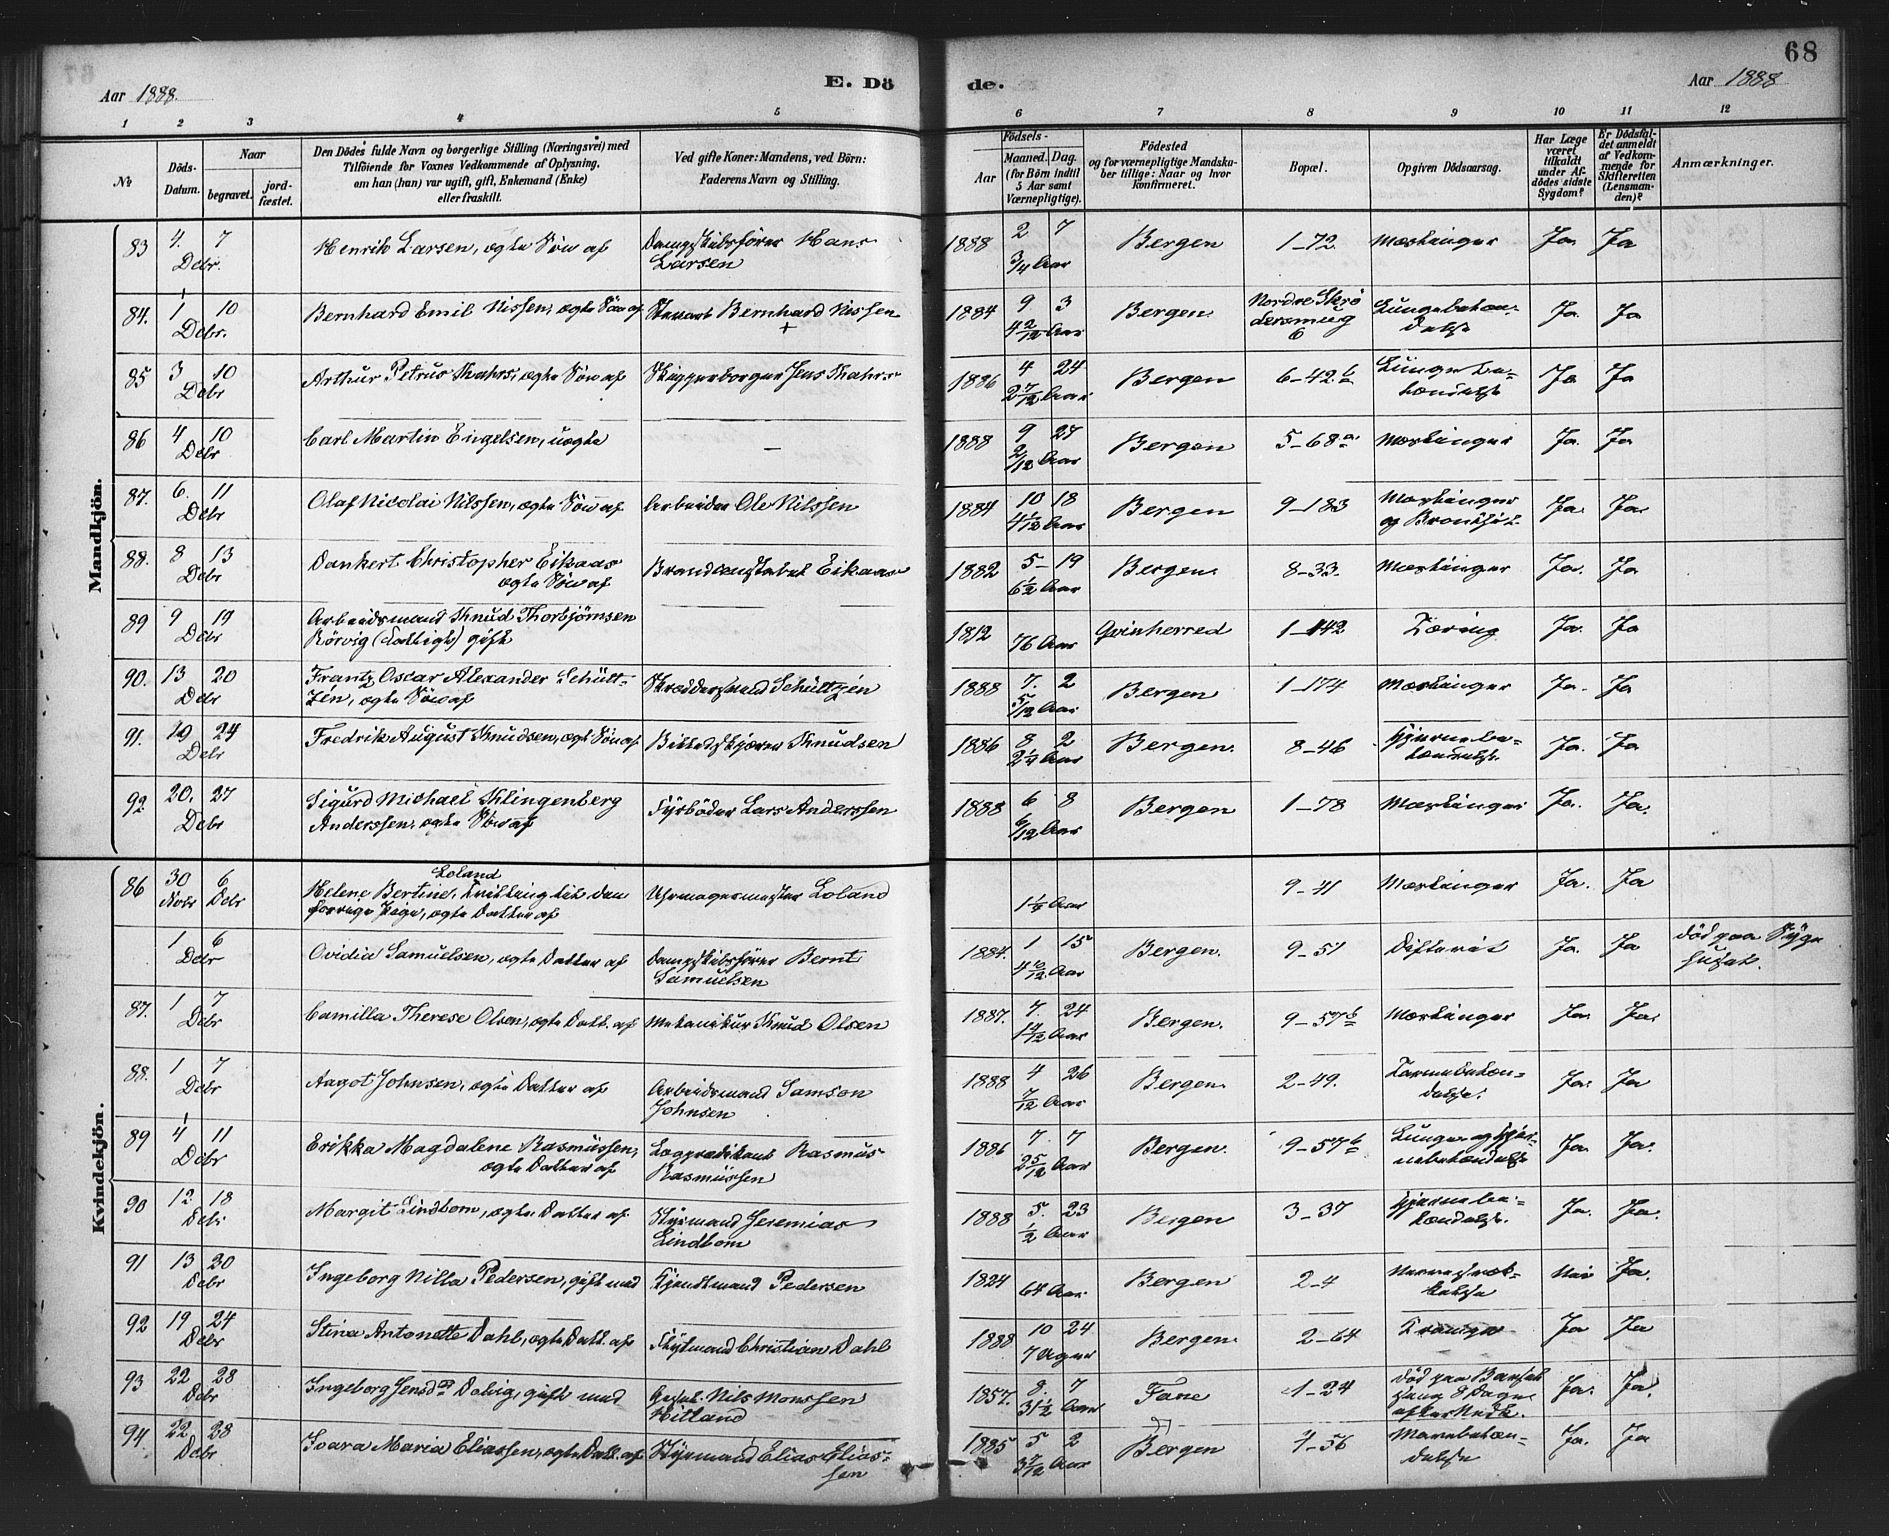 68
Aar 1888.
E. Dö de.
Aar 1888
1 2 3 4 5 6 7 8 9 10 11 12
No
Döds-Datum.
Naar
begravet.
jord-fæstet.
Den Dödes fulde Navn og borgerlige Stilling (Næringsvei) med
Tilföiende for Voxnes Vedkommende af Oplysning,
om han (hun) var ugift, gift, Enkemand (Enke)
eller fraskilt.
Ved gifte Koner: Mandens, ved Börn:
Faderens Navn og Stilling.
Födsels-
Aar
Maaned. Dag.
(for Börn indtil
5 Aar samt
Værnepligtige).
Födested
og for værnepligtige Mandska-
ber tillige: Naar og hvor
konfirmeret.
Bopæl.
Opgiven Dödsaarsag.
Har Læge
været
tilkaldt
under Af-
dödes sidste
Sygdom?
Er Dödsfal-
det anmeldt
af Vedkom-
mende for
Skifteretten
(Lensman-
den)?
Anmærkninger.
Mandkjön.
83 4. Debr. 7 Henrik Larsen, ægte Sön af Dampskibsförer Hans Larsen 1888 2 7 3/4 Aar Bergen 1-72 Mæslinger Ja Ja
84. 1 Debr. 10 Bernhard Emil Nissen, ægte Sön af Stuart Bernhard Nissen 1884 9 3 4 2/12 Aar Bergen Nordre Skrö dersmug 6 Lungebetæn-delse Ja Ja
85 3 Debr 10 Arthur Petrus Mahrs, ægte Sön af Skipperborger Jens Mahrs 1886 4 24 2 7/12 Aar Bergen 6-42 b Lungebe-tændelse Ja Ja
86 4 Debr 10 Carl Martin Engelsen, uægte — 1888 9 27 2/12 Aar Bergen 5-68 a Mæslinger Ja Ja
87. 6. Debr 11 Olaf Nicolai Nilssen, ægte Sön af Arbeider Ole Nilssen 1884 10 18 4 1/12 Aar Bergen 9-183 Mæslinger og Ja Ja
88. 8 Debr 13 Dankert Christopher Eikaas ægte Sön af Brandconstabel Eikaas 1882 5 19 6 1/2 Aar Bergen 8-33. Mæslinger Ja. Ja
89 9 Debr 19 Arbeidsmand Knud Thorbjörnsen Rörvig (fattig) gift 1812 76 Aar Qvinherred 1-142 Tæring Ja. Ja
90. 13 Debr 20 Frantz Oscar Alexander Schült-zén, ægte Sön af Skreddersvend Schültzén 1888 7. 2 5/12 Aar Bergen 1-174 Mæslinger Ja. Ja
91. 19 Debr 24 Fredrik August Knudsen, ægte Sön af Billedskjærer Knudsen 1886 8 2 2 1/4 Aar Bergen. 8-46 Hjernebe-tændelse. Ja. Ja
92. 20. Debr 27 Sigurd Michael Klingenberg Anderssen, ægte Sön af Fyrböder Lars Anderssen 1888 6 8 6/12 Aar Bergen 1-78 Mæslinger Ja. Ja.
Kvindekjön.
86 30 Novbr 6 Debr Helene Bertine Loland, Tvilling til den forrige Pige, ægte Datter af Uhrmagermester Loland 1 1/2 Aar 9-41 Mæslinger Ja. Ja
1 Debr 6 Ovidia Samuelsen, ægte Datter af Dampskibsförer Bernt Samuelsen 1884. 1 15 4 10/12 Aar Bergen. 9-51 Difterit Ja. Ja död paa Syge huset.
87. 1 Debr 7 Camilla Therese Olsen, ægte Datt. af Mekanikur Knud Olsen 1887. 7. 24 Aar Bergen. 9-57 b Mæslinger Ja. Ja.
88. 1 Debr 7 Aagot Johnsen, ægte Datter af Arbeidsmand Samson Johnsen 1888 4 26 7/12 Aar Bergen. 2-49. Tarmebetæn-delse. Ja. Ja
89 4 Debr 11 Erikka Magdalene Rasmüssen, ægte Datter af Lægprædikant Rasmus Rasmüssen 1886 7. 7 2 5/12 Aar Bergen. 9-57 b Lunge og Hjer-nebetændelse Ja. Ja.
90 12. Debr 18 Margit Lindbom, ægte Datter af Styrmand Jeremias Lindbom 1888 5. 23 1/2 Aar Bergen 3-37 Hjernebe-tændelse. Ja. Ja.
91 13 Debr 20 Ingeborg Nilla Pedersen, gift med Pedersen 1824 64 Aar Bergen 2-4 Nei Ja.
92 19 Debr 24 Stina Antonette Dahl, ægte Datt. af Christian Dahl 1888 10 24 7 Uger Bergen. 2-64 Krampe Ja Ja
93 22 Debr 28 Ingeborg Jensd. Dalvig, gift med Nils Monssen Hitland 1857. 8. 7 31 1/2 Aar Fane 1-24 död paa Barsel-seng 8 Dage efter Ja. Ja.
94 22 Debr 28 Ivara Maria Eliassen, ægte Datt. af Styrmand Elias Elias-sen 1885 5 2 3 7/12 Aar Bergen 4-56 Mavebetæn-delse Ja. Ja